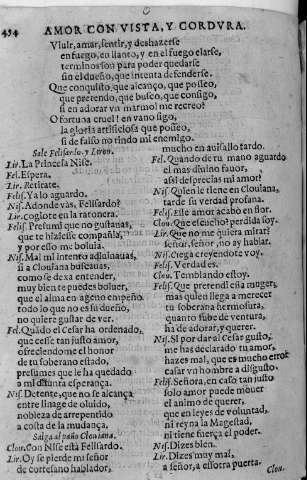 454 AMOR CON VISTA, Y CORDVRA.
Viuir, amar, sentir, y deshazerse
en fuego, en llanto, y en el fuego elarse,
terminos son para poder quedarse
sin el dueño, que intenta defenderse.
Que conquisto, que alcanço, que posseo,
que pretendo, que busco, que consigo,
si en adorar vn marmol me recreo?
O fortuna cruel! en vano sigo,
la gloria artificiosa que posseo,
si de falso no rindo mi enemigo.
Sale Felisardo, y Liron.
Lir. La Princesa Nise.
Fel. Espera.
Lir. Retirate.
Felis. Ya lo aguardo.
Nis. Adonde vas, Felisardo?
Lir. Cogiote en la ratonera.
Felis. Presumi que no gustauas,
que te hiziesse compañia,
y por esso me boluia.
Nis. Mal mi intento adiuinauas,
si a Clouiana buscauas,
como se dexa entender,
muy bien te puedes boluer,
que el alma en ageno empeño,
todo lo que no es su dueño,
no quiere gustar de ver.
Fel. Quãdo el Cesar ha ordenado,
que cesse tan justo amor,
ofreciendome el honor
de tu soberano estado,
presumes que le ha quedado
a mi difunta esperança.
Nis. Detente, que no se alcança
entre linage de oluido,
nobleza de arrepentido
a costa de la mudança,
Salga al paño Clouiana.
Clou. Con Nise está Felisardo.
Lir. Oy se pierde mi señor
de cortesano hablador,
mucho en auisallo tardo.
Fel. Quando de tu mano aguardo
el mas diuino fauor,
assi desprecias mi amor?
Nis. Quien le tiene en Clouiana,
tarde su verdad profana.
Felis. Esse amor acabò en flor.
Clou. Que escucho? perdida soy.
Lir. Que no me quiera mirar!
señor, señor, no ay hablar.
Nis. Ciega creyendote voy.
Felis. Verdad es.
Clou. Temblando estoy.
Felis. Que pretendi essa muger,
mas quien llega a merecer
tu soberana hermosura,
quanto sube de ventura,
ha de adorar, y querer.
Nis. Si por dar al Cesar gusto,
me has declarado tu amor,
hazes mal, que es mucho error
casar vn hombre a disgusto.
Felis. Señora, en caso tan justo
solo amor puede mouer
el animo de querer,
que en leyes de voluntad,
ni reyna la Magestad,
ni tiene fuerça el poder.
Nis. Dizes bien.
Lir. Dizes muy mal,
a señor, a essotra puerta.
Clou.